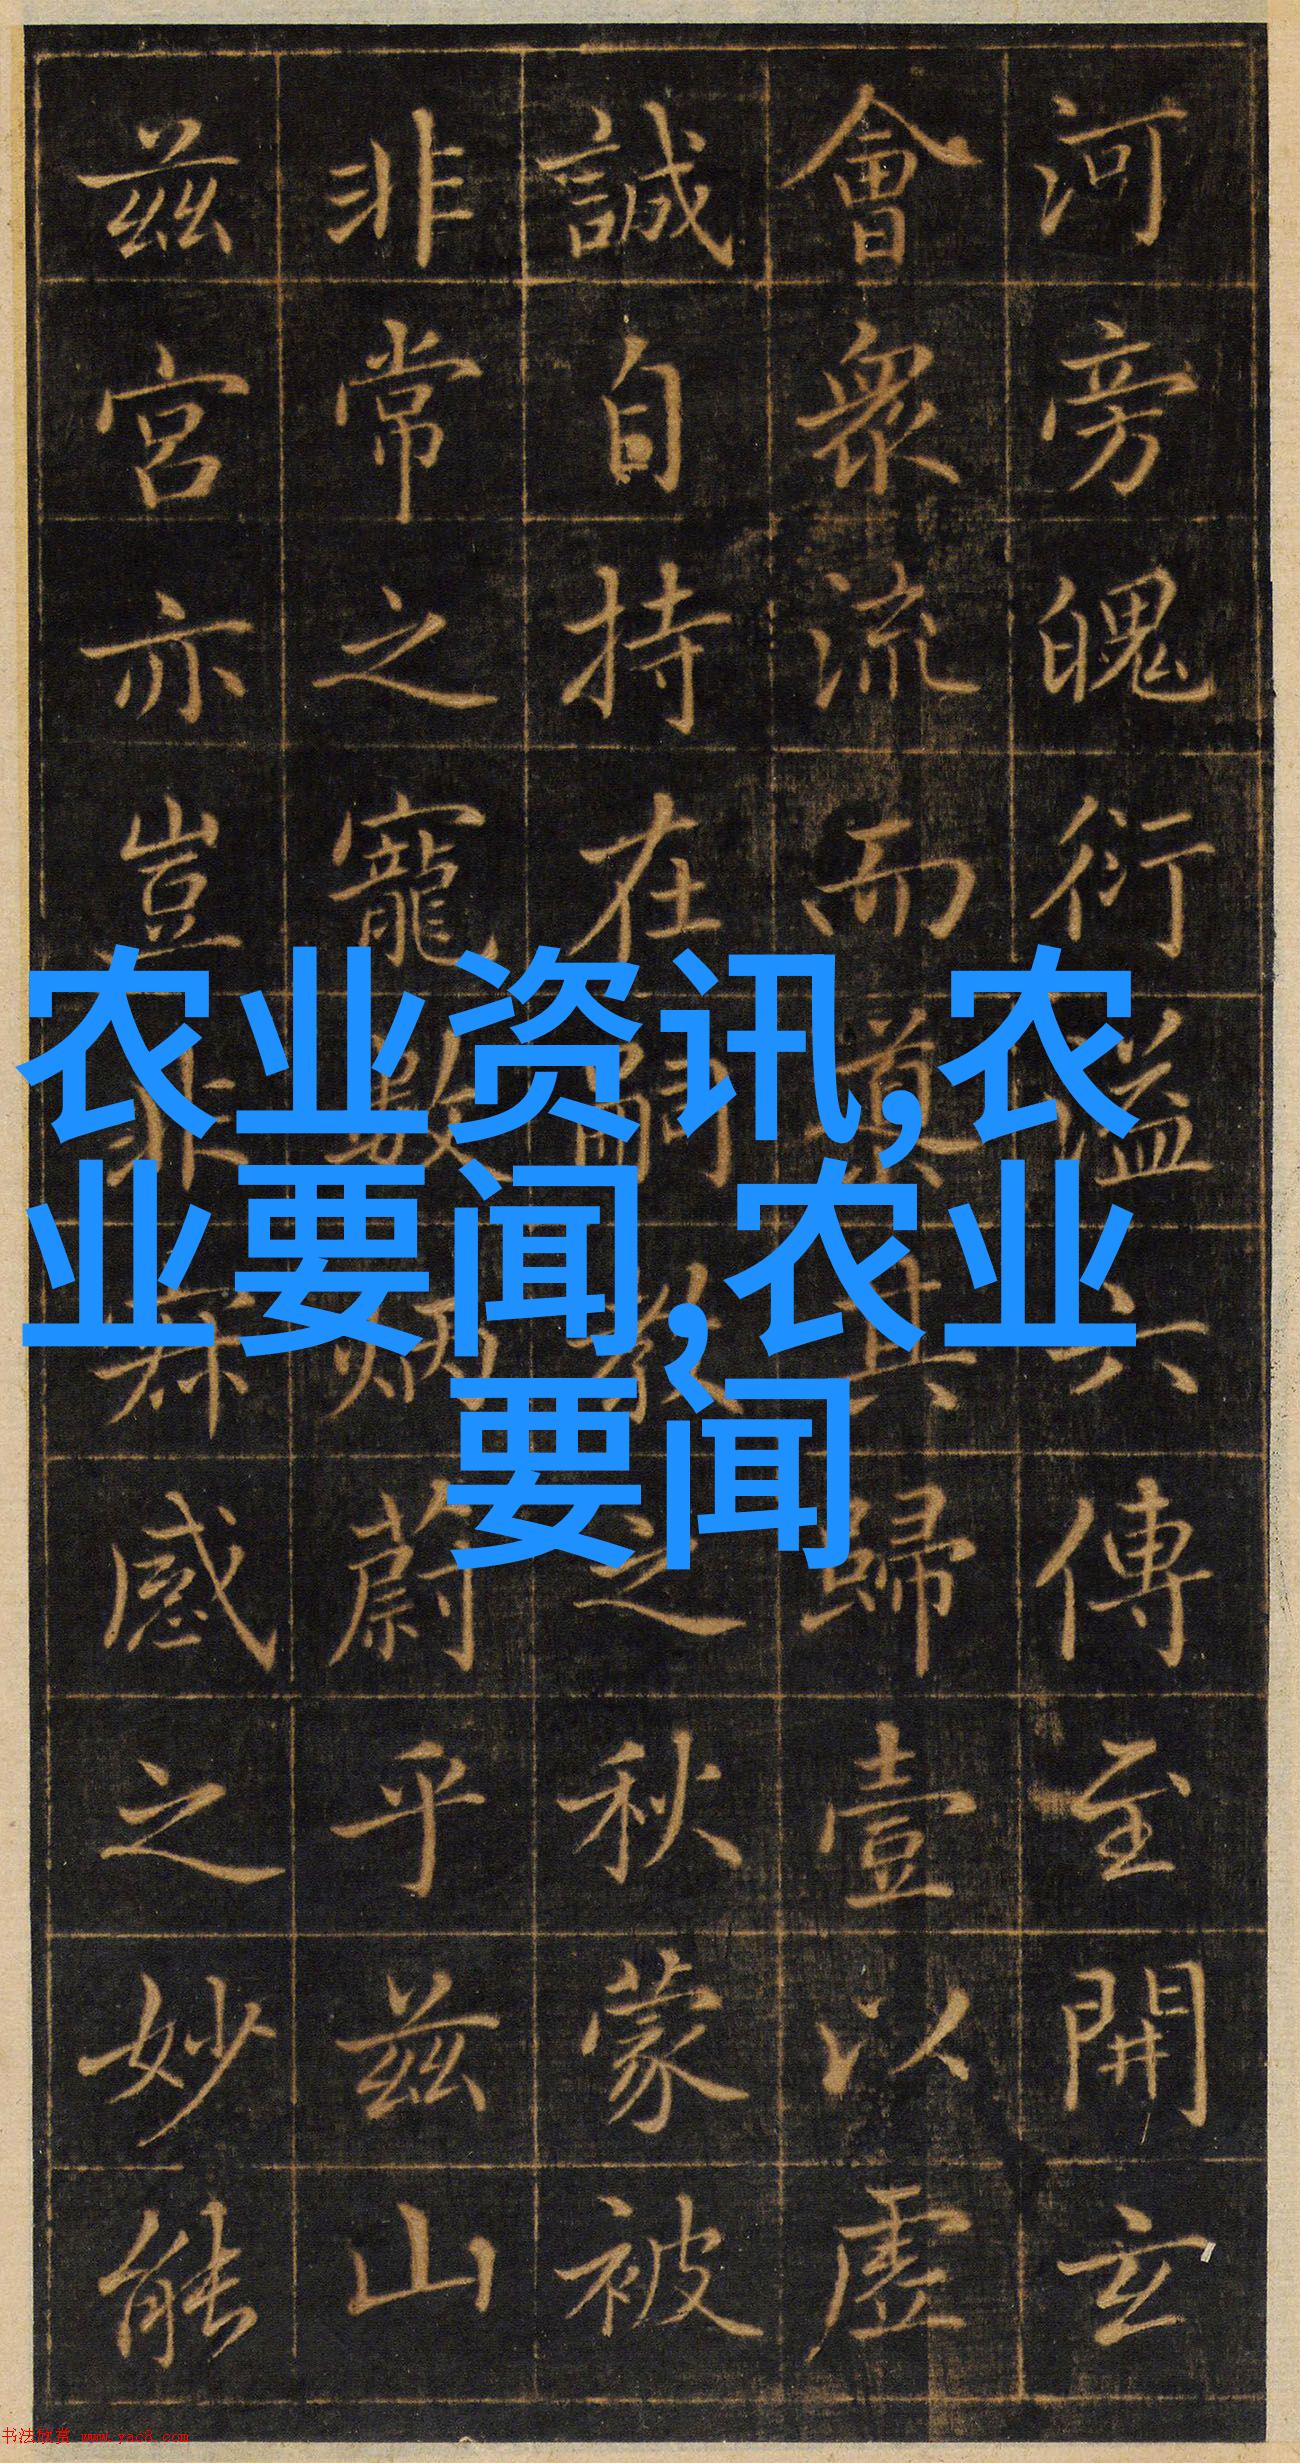 河旁魄衍溢六傳至開玄
會眾流而奠其歸壹以虛
誠自持在嗣教之秋蒙被
非常之寵數炳蔚乎茲山
茲宮亦豈非感之妙能
农业资讯,农
业要闻,农业
要闻
书法欣赏 www.yac8.com